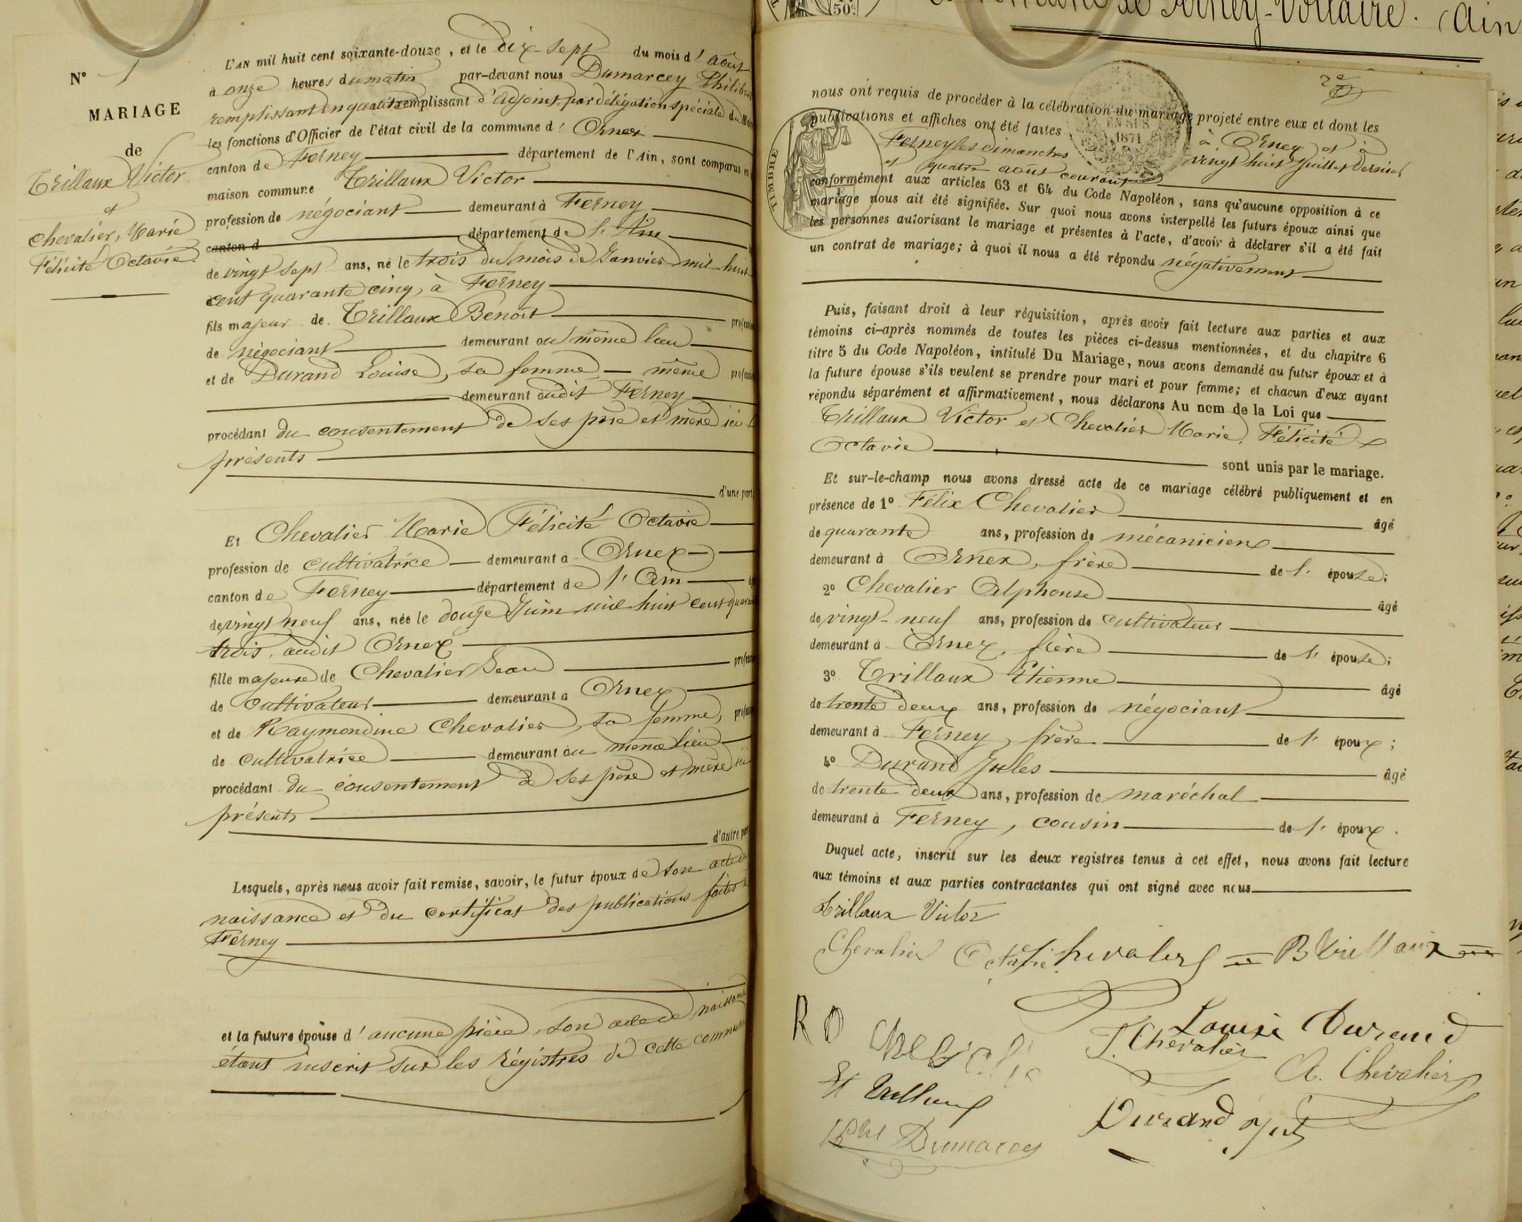 50c
Commune de Ferney-Voltaire. (Ain
N°
MARIAGE
de
Trillaux Victor
et
Chevalier, Marie
Félicité Octavie
L'AN mil huit cent soixante-douze, et le dix-sept du mois d'août
à onze heures du matin par-devant nous Dumarcey Philibert
remplissant en qualité remplissant d'adjoint, par délégation spéciale du
les fonctions d'Officier de l'état civil de la commune d'Ornex
canton de Ferney département de l'Ain, sont comparus en
maison commune Trillaux Victor
profession de négociant demeurant à Ferney
canton d département de l'Ain
de vingt sept ans, né le trois du mois de Janvier mil-huit
cent quarante cinq, à Ferney
fils majeur de Trillaux Benoit profes
de négociant demeurant au même lieu
et de Durand Louise, sa femme, même profes
demeurant audit Ferney
procédant du consentement de ses père et mère ici
présents
d'une part
Et Chevalier Marie Félicité Octavie
profession de cultivatrice demeurant à Ornex
canton de Ferney département de l'Ain
de vingt neuf ans, née le douze Juin mil huit cent quarante
trois, audit Ornex
fille majeure de Chevalier Jean profes
de cultivateur demeurant à Ornex
et de Raymondine Chevalier, sa femme,
de cultivatrice demeurant au même lieu
procédant du consentement de ses père et mère ici
présents
d'autre part
Lesquels, après nous avoir fait remise, savoir, le futur époux de son acte de
naissance et du certificat des publications faites à
Ferney
et la future épouse d'aucune pièce, son acte de naissance
étant inscrit sur les régistres de cette commune
2e
nous ont requis de procéder à la célébration du mariage projeté entre eux et dont les
publications et affiches ont été faites à Ornex et à
Ferney les dimanches vingt huit Juillet dernier
et quatre août courant
conformément aux articles 63 et 64 du Code Napoléon, sans qu'aucune opposition à ce
mariage nous ait été signifiée. Sur quoi nous avons interpellé les futurs époux ainsi que
les personnes autorisant le mariage et présentes à l'acte, d'avoir à déclarer s'il a été fait
un contrat de mariage; à quoi il nous a été répondu négativement
TIMBRE
1871
Puis, faisant droit à leur réquisition, après avoir fait lecture aux parties et aux
témoins ci-après nommés de toutes les pièces ci-dessus mentionnées, et du chapitre 6
titre 5 du Code Napoléon, intitulé Du Mariage, nous avons demandé au futur époux et à
la future épouse s'ils veulent se prendre pour mari et pour femme; et chacun d'eux ayant
répondu séparément et affirmativement, nous déclarons Au nom de la Loi que
Trillaux Victor et Chevalier Marie, Félicité
Octavie sont unis par le mariage.
Et sur-le-champ nous avons dressé acte de ce mariage célébré publiquement et en
présence de 1° Félix Chevalier âgé
de quarante ans, profession de mécanicien
demeurant à Ornex, frère de l'épouse;
2° Chevalier Alphonse âgé
de vingt-neuf ans, profession de cultivateur
demeurant à Ornex, frère de l'épouse;
3° Trillaux Etienne âgé
de trente deux ans, profession de négociant
demeurant à Ferney, frère de l'époux;
4° Durand Jules âgé
de trente deux ans, profession de maréchal
demeurant à Ferney, cousin de l'époux.
Duquel acte, inscrit sur les deux registres tenus à cet effet, nous avons fait lecture
aux témoins et aux parties contractantes qui ont signé avec nous
Trillaux Victor
Chevalier Octavie Chevalier J B Trillaux
R D Chevalie Louise Durand
F. Chevalier
Et Trillaux A. Chevalier
Durand Jules
Phbt Dumarcey